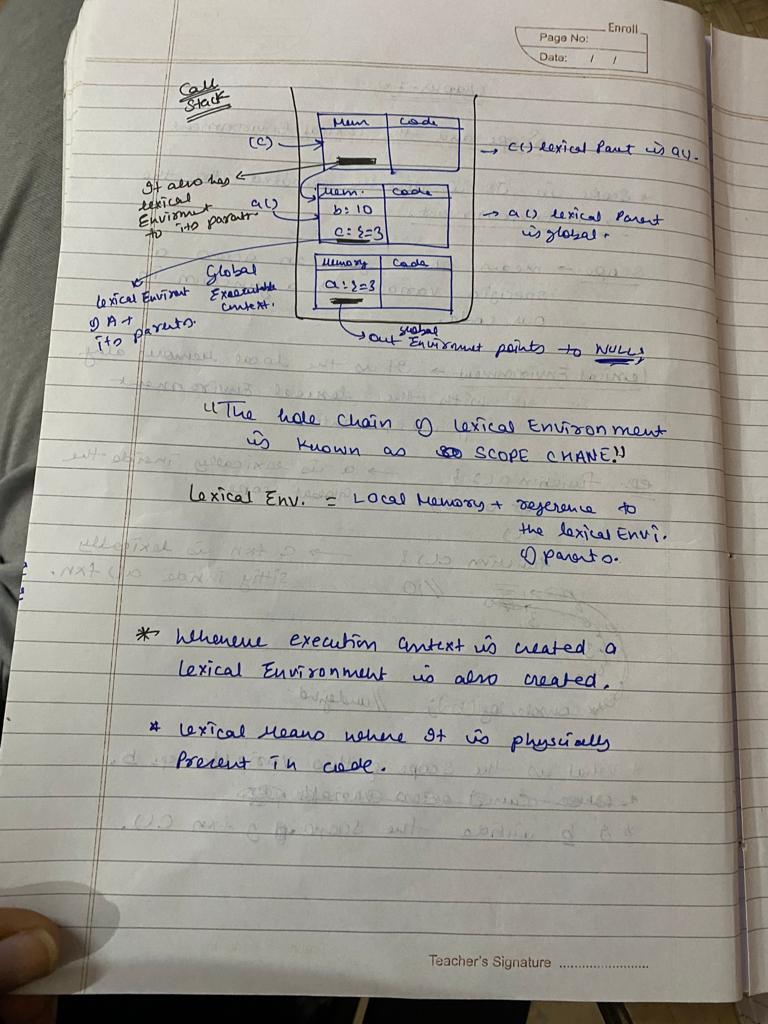 Enroll
Page No:
Date: / /
Call
Stack
Mem Code
(C)
→ c() lexical Parent is a().
It also has
lexical
Envirment
to its parents
a()
Mem. Code
b: 10
c: {=3
→ a() lexical Parent
is global.
Global
Executable
Context.
Memory Code
a: {=3
lexical Envirent
of A +
its parents.
→ out global Envirment points to NULL;
"The hole chain of lexical Environment
is known as SCOPE CHANE."
Lexical Env. = Local Memory + reference to
the lexical Envi.
of parents.
* Whenever execution context is created a
lexical Environment is also created.
* lexical Means where It is physcially
Present in code.
Teacher's Signature ........................